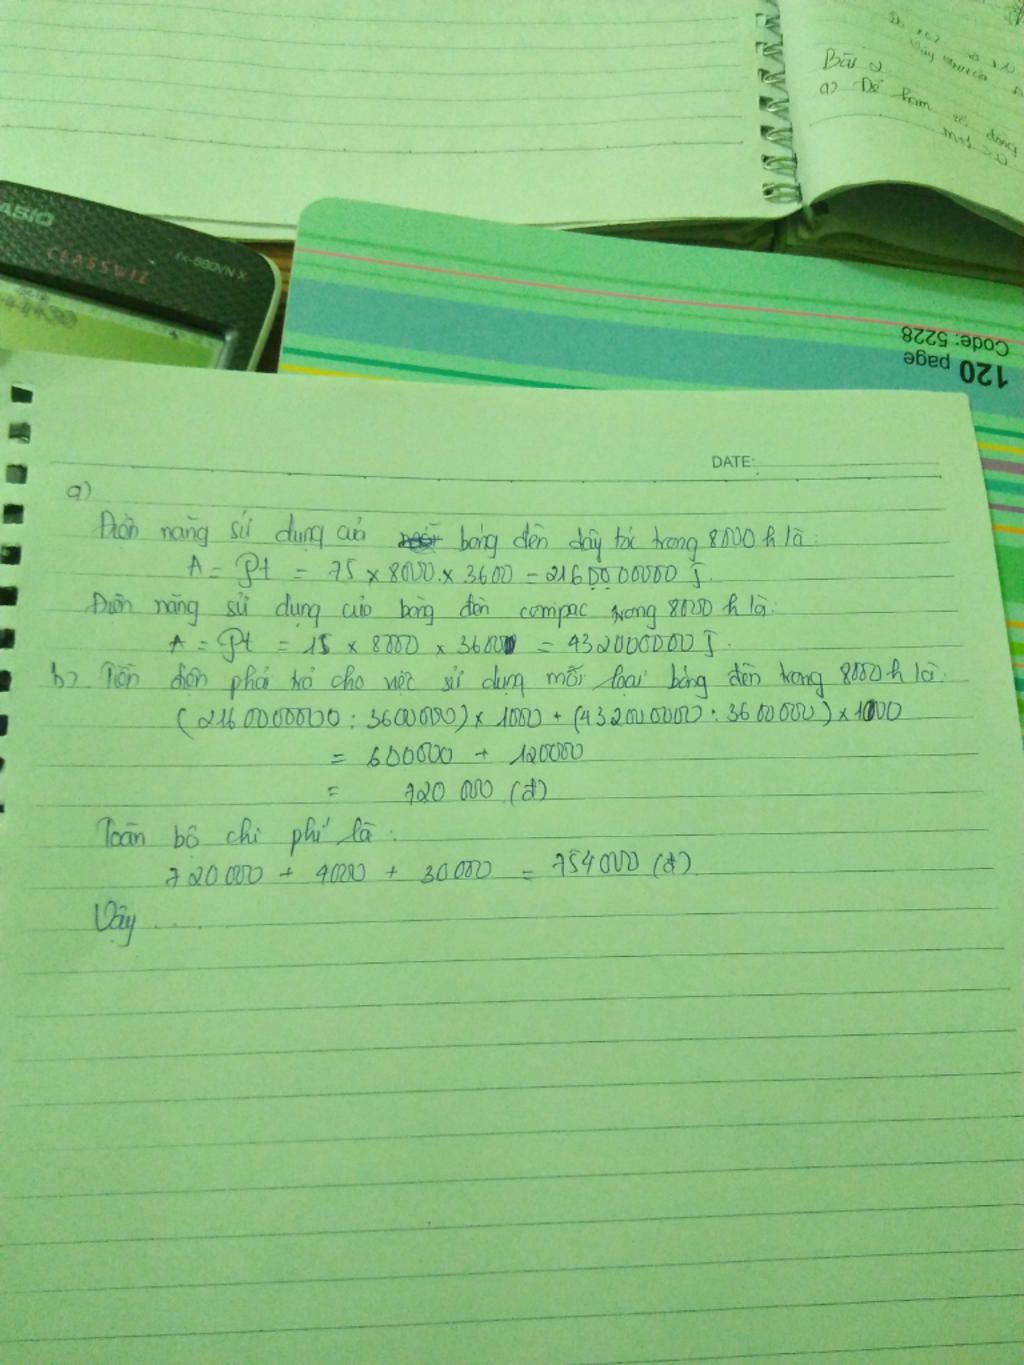 Bài 2
a) Để hàm số
CASIO
CLASSWIZ
fx-580VN X
Code: 5228
120 page
DATE:
a)
Điện năng sử dụng của bóng đèn dây tóc trong 8000 h là:
A = Pt = 75 x 8000 x 3600 = 2160000000 J.
Điện năng sử dụng của bóng đèn compac trong 8000 h là:
A = Pt = 15 x 8000 x 3600 = 432000000 J.
b) Tiền điện phải trả cho việc sử dụng mỗi loại bóng đèn trong 8000 h là:
(2160000000 : 3600000) x 1000 + (432000000 : 3600000) x 1000
= 600000 + 120000
= 720 000 (đ)
Toàn bộ chi phí là:
720000 + 4000 + 30000 = 754000 (đ)
Vậy .....